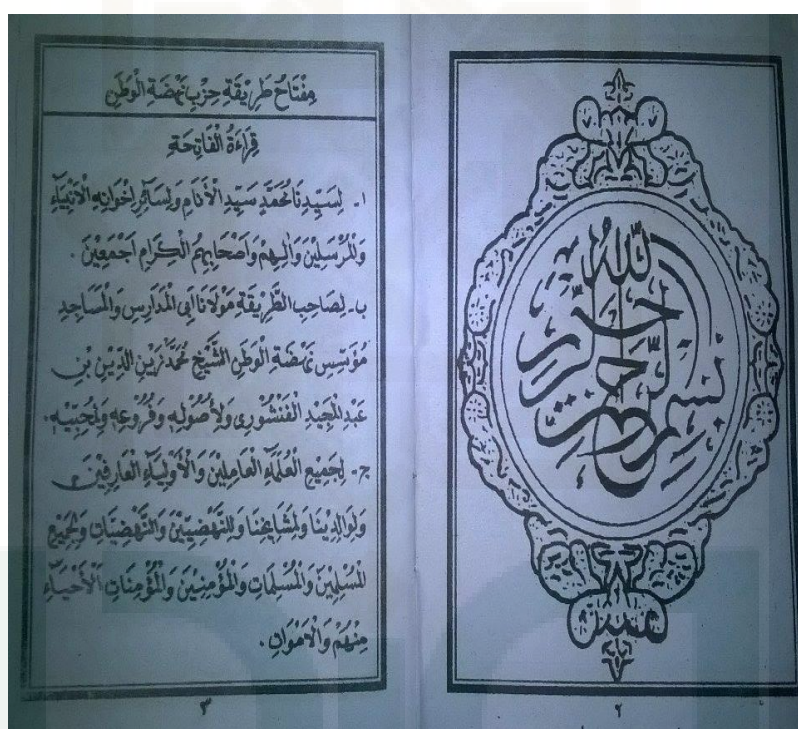 بسم الله الرحمن الرحيم
٢
مِفْتَاحُ طَرِيْقَةِ حِزْبِ نَهْضَةِ الْوَطَنِ
قِرَاءَةُ الْفَاتِحَةِ
١- لِسَيِّدِنَا مُحَمَّدٍ سَيِّدِ الْأَنَامِ وَلِسَآئِرِ اِخْوَانِهِ الْاَنْبِيَآءِ
وَالْمُرْسَلِيْنَ وَاٰلِهِمْ وَاَصْحَابِهِمُ الْكِرَامِ اَجْمَعِيْنَ .
ب- لِصَاحِبِ الطَّرِيْقَةِ مَوْلَانَا اَبِى الْمَدَارِسِ وَالْمَسَاجِدِ
مُؤَسِّسِ نَهْضَةِ الْوَطَنِ الشَّيْخِ مُحَمَّد زَيْنِ الدِّيْنِ بْنِ
عَبْدِ الْمَجِيْدِ الْفَنْشُوْرِى وَلِأُصُوْلِهِ وَفُرُوْعِهِ وَلِمُحِبِّيْهِ .
ج- لِجَمِيْعِ الْعُلَمَآءِ الْعَامِلِيْنَ وَالْأَوْلِيَآءِ الْعَارِفِيْنَ
وَلِوَالِدِيْنَا وَلِمَشَايِخِنَا وَلِلنَّهْضِيِّيْنَ وَالنَّهْضِيَّاتِ وَلِجَمِيْعِ
الْمُسْلِمِيْنَ وَالْمُسْلِمَاتِ وَالْمُؤْمِنِيْنَ وَالْمُؤْمِنَاتِ الْأَحْيَآءِ
مِنْهُمْ وَالْاَمْوَاتِ .
٣